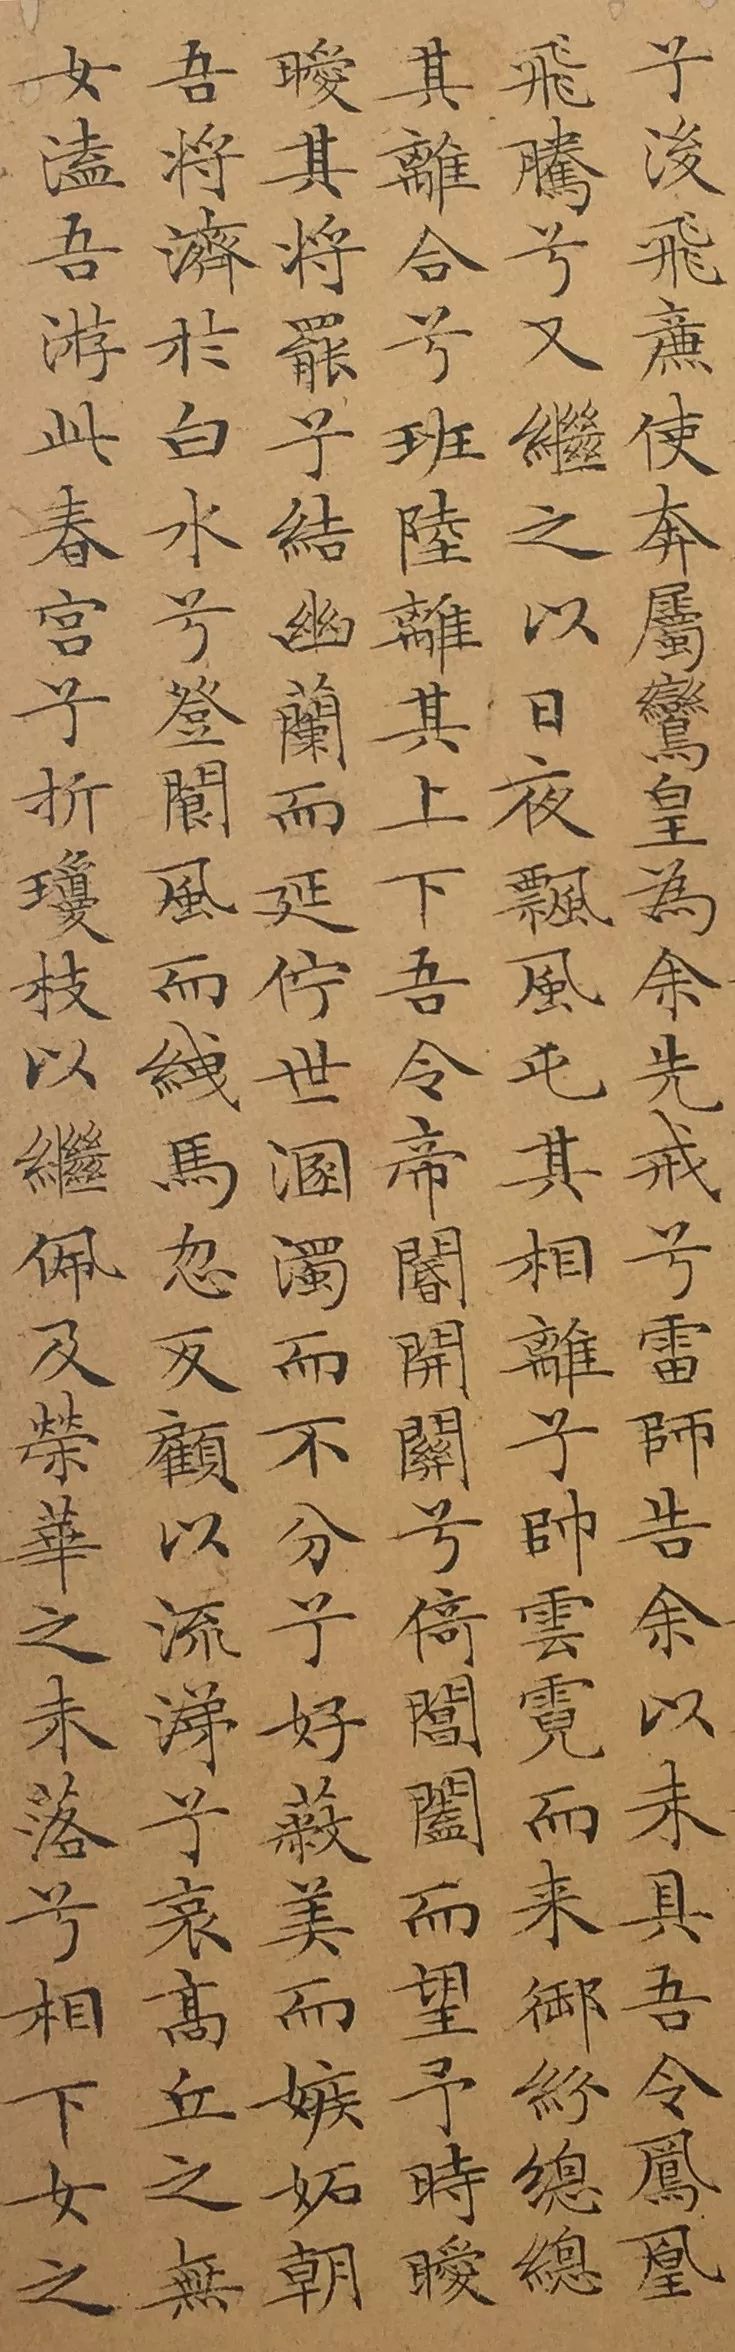 兮後飛廉使奔屬鸞皇為余先戒兮雷師告余以未具吾令鳳凰
飛騰兮又繼之以日夜飄風屯其相離兮帥雲霓而来御紛總總
其離合兮班陸離其上下吾令帝閽開關兮倚閶闔而望予時曖
曖其将罷兮結幽蘭而延佇世溷濁而不分兮好蔽美而嫉妬朝
吾将濟於白水兮登閬風而絏馬忽反顧以流涕兮哀髙丘之無
女溘吾游此春宮兮折瓊枝以繼佩及榮華之未落兮相下女之